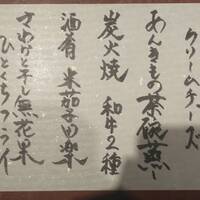 クリームチーズ
あんきもの茶碗蒸し
炭火焼 和牛2種
酒肴 米茄子田楽
さわけと干し無花果
ひとくちフライ